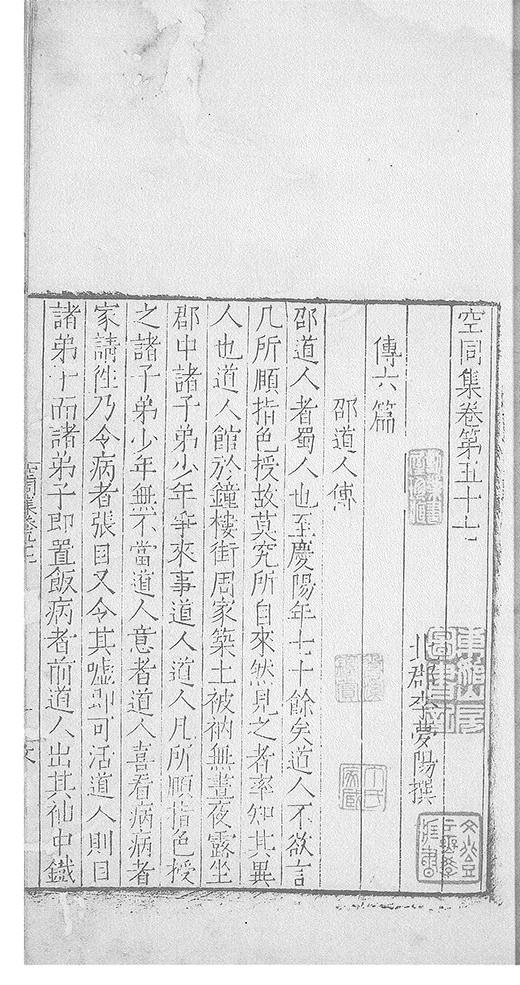 空同集卷第五十七
北郡李夢陽撰
傳六篇
邵道人傳
邵道人者蜀人也至慶陽年七十餘矣道人不欲言
凡所順指色授故莫究所自來然見之者率知其異
人也道人館於鐘樓街周家築土被衲無晝夜露坐
郡中諸子弟少年爭來事道人道人凡所順指色授
之諸子弟少年無不當道人意者道人喜看病病者
家請往乃令病者張目又令其噓即可活道人則目
諸弟子而諸弟子即置飯病者前道人出其袖中鐵
空同集卷五十七